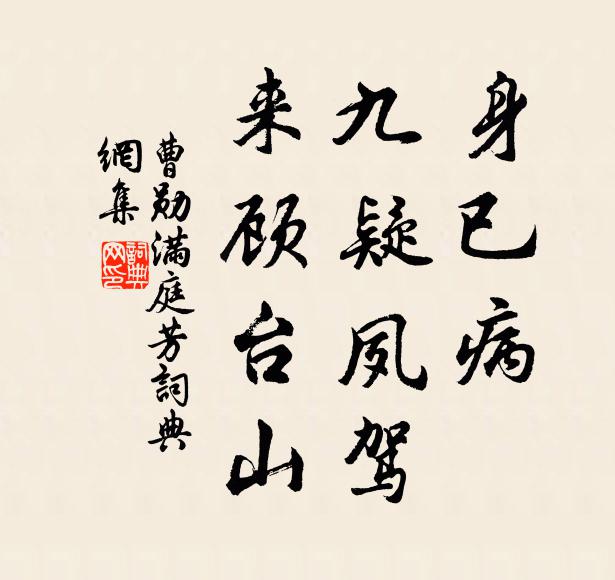 身已病
九疑夙驾
来顾台山
曹勋满庭芳詞典
網集
詞典
网印